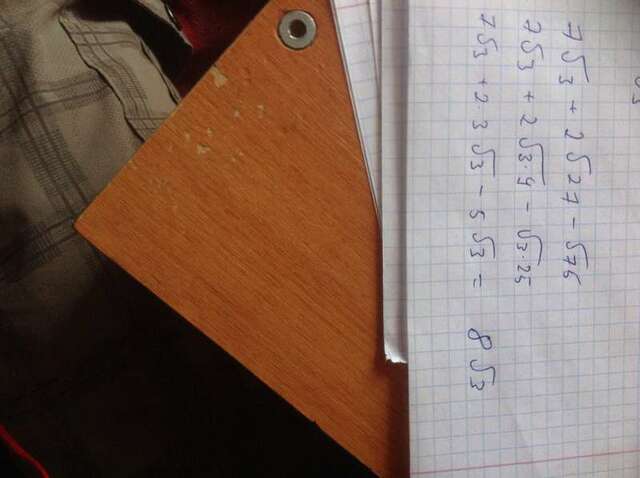 7√3 + 2√27 - √75
7√3 + 2√3·9 - √3·25
7√3 + 2·3√3 - 5√3 = 8√3